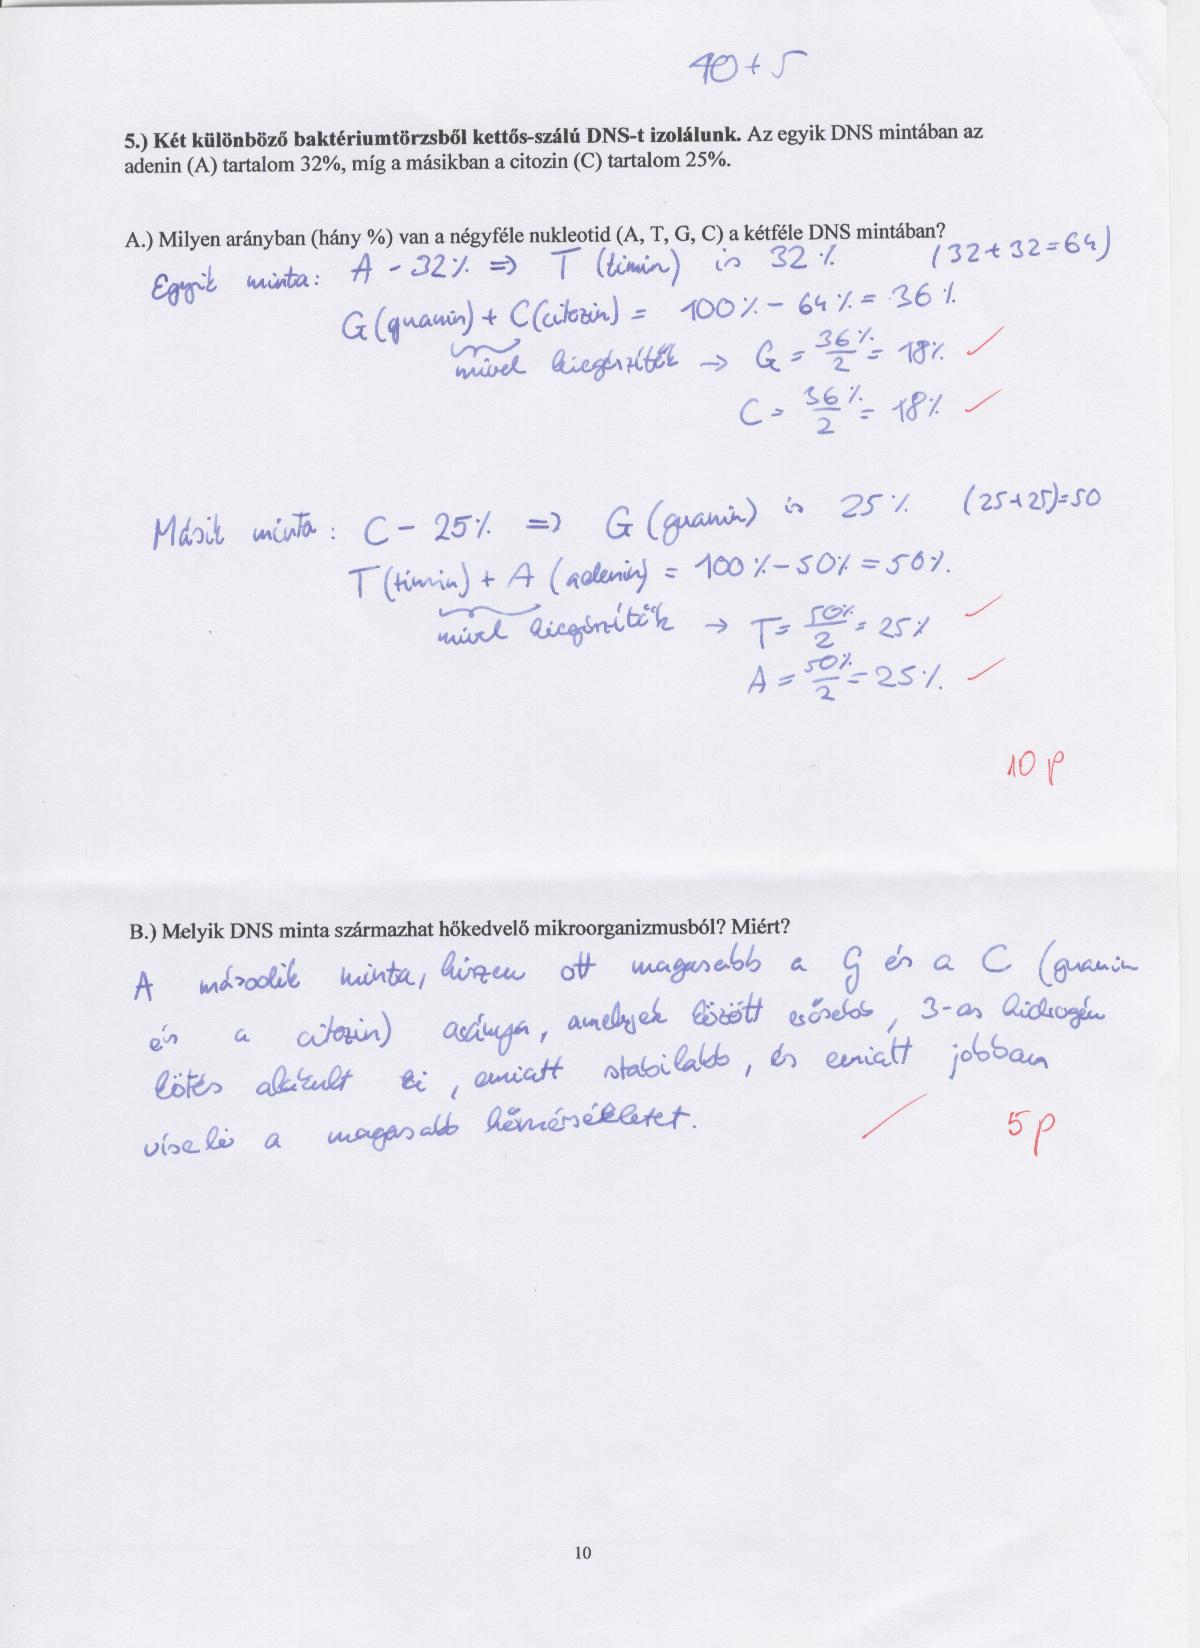 40 + 5
5.) Két különböző baktériumtörzsből kettős-szálú DNS-t izolálunk. Az egyik DNS mintában az
adenin (A) tartalom 32%, míg a másikban a citozin (C) tartalom 25%.
A.) Milyen arányban (hány %) van a négyféle nukleotid (A, T, G, C) a kétféle DNS mintában?
Egyik minta: A - 32% => T (timin) is 32% (32+32=64)
G (guanin) + C (citozin) = 100% - 64% = 36%
mivel kiegészítők → G = 36%/2 = 18%
C = 36%/2 = 18%
Másik minta: C - 25% => G (guanin) is 25% (25+25)=50
T (timin) + A (adenin) = 100% - 50% = 50%.
mivel kiegészítők → T = 50%/2 = 25%
A = 50%/2 = 25%.
10 p
B.) Melyik DNS minta származhat hőkedvelő mikroorganizmusból? Miért?
A második minta, hiszen ott magasabb a G és a C (guanin
és a citozin) aránya, amelyek között erősebb, 3-as hidrogén
kötés alakult ki, emiatt stabilabb, és emiatt jobban
viseli a magasabb hőmérsékletet.
5 p
10